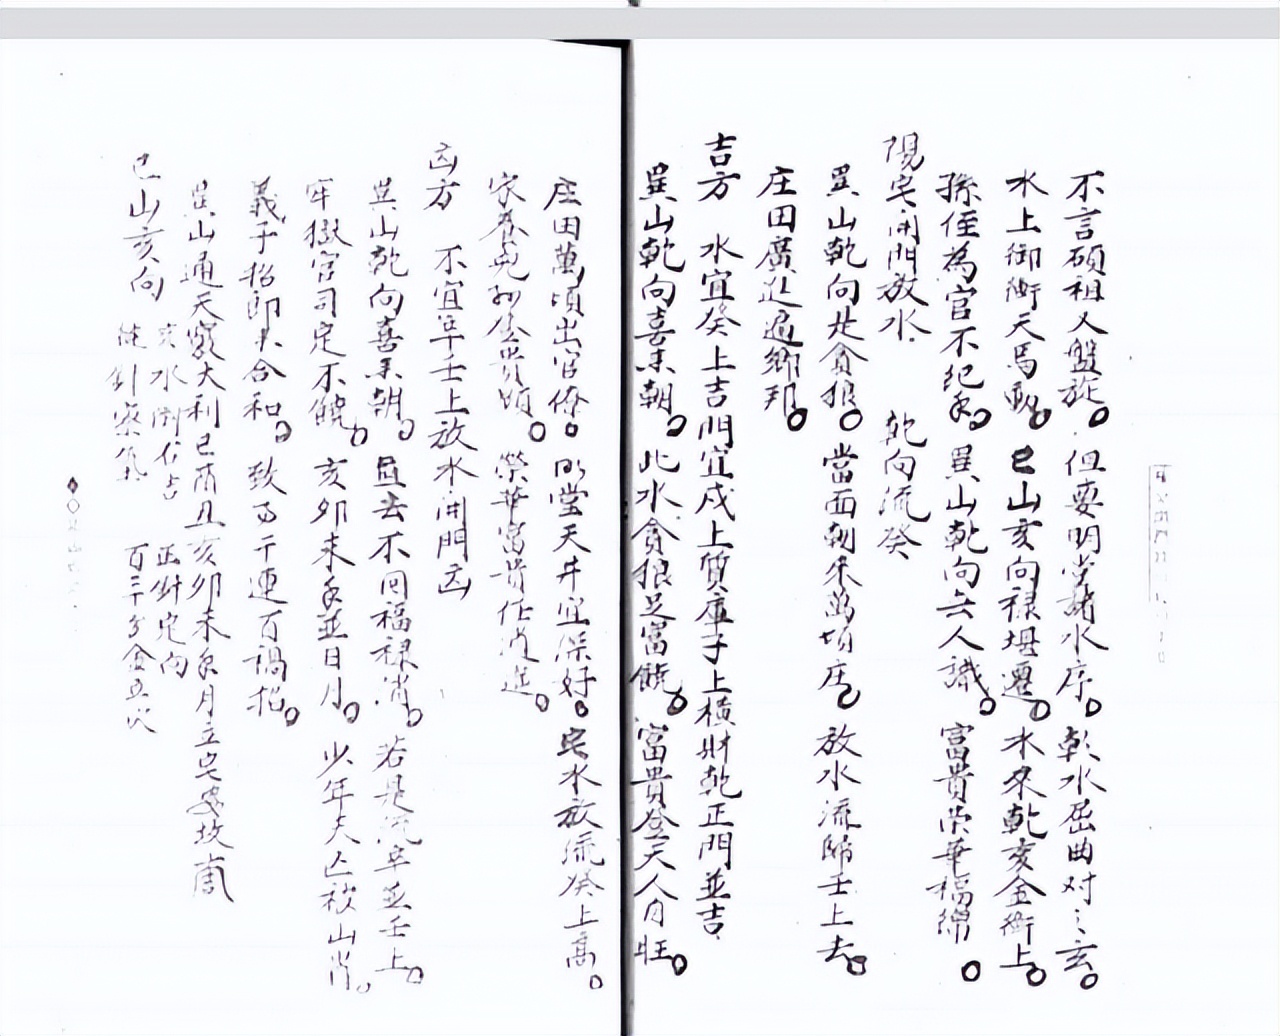 不言碩祖人盤旋。但要明堂諸水序。乾水屈曲对之玄。
水上御街天馬動。巳山亥向祿堪遷。水來乾亥金街上。
孫侄為官不紀年。巽山乾向無人識。富貴荣華福綿。
陽宅開門放水. 乾向流癸
巽山乾向是貪狼。當面朝來萬頃庄。放水流歸壬上去。
庄田廣進遍鄉邦。
吉方 水宜癸上吉門宜戌上質庫子上橫財乾正門並吉.
巽山乾向喜来朝。此水貪狼足富饒。富貴登天人自旺。
庄田萬頃出官僚。明堂天井宜深好。宅水放流癸上高。
家养兒孙登貴顕。榮華富貴任消遥。
凶方 不宜辛壬上放水開門凶
巽山乾向喜来朝。直去不同福祿消。若是流辛並壬上。
牢獄官司定不饒。亥卯未年並日月。少年夭亡被山肖。
義子招郎来合和。致死干連百禍招。
巽山通天竅大利巳酉丑亥卯未年月立宅安坟
巳山亥向
亥水開向吉 正針定向
縫針察氣 百二十分金立穴